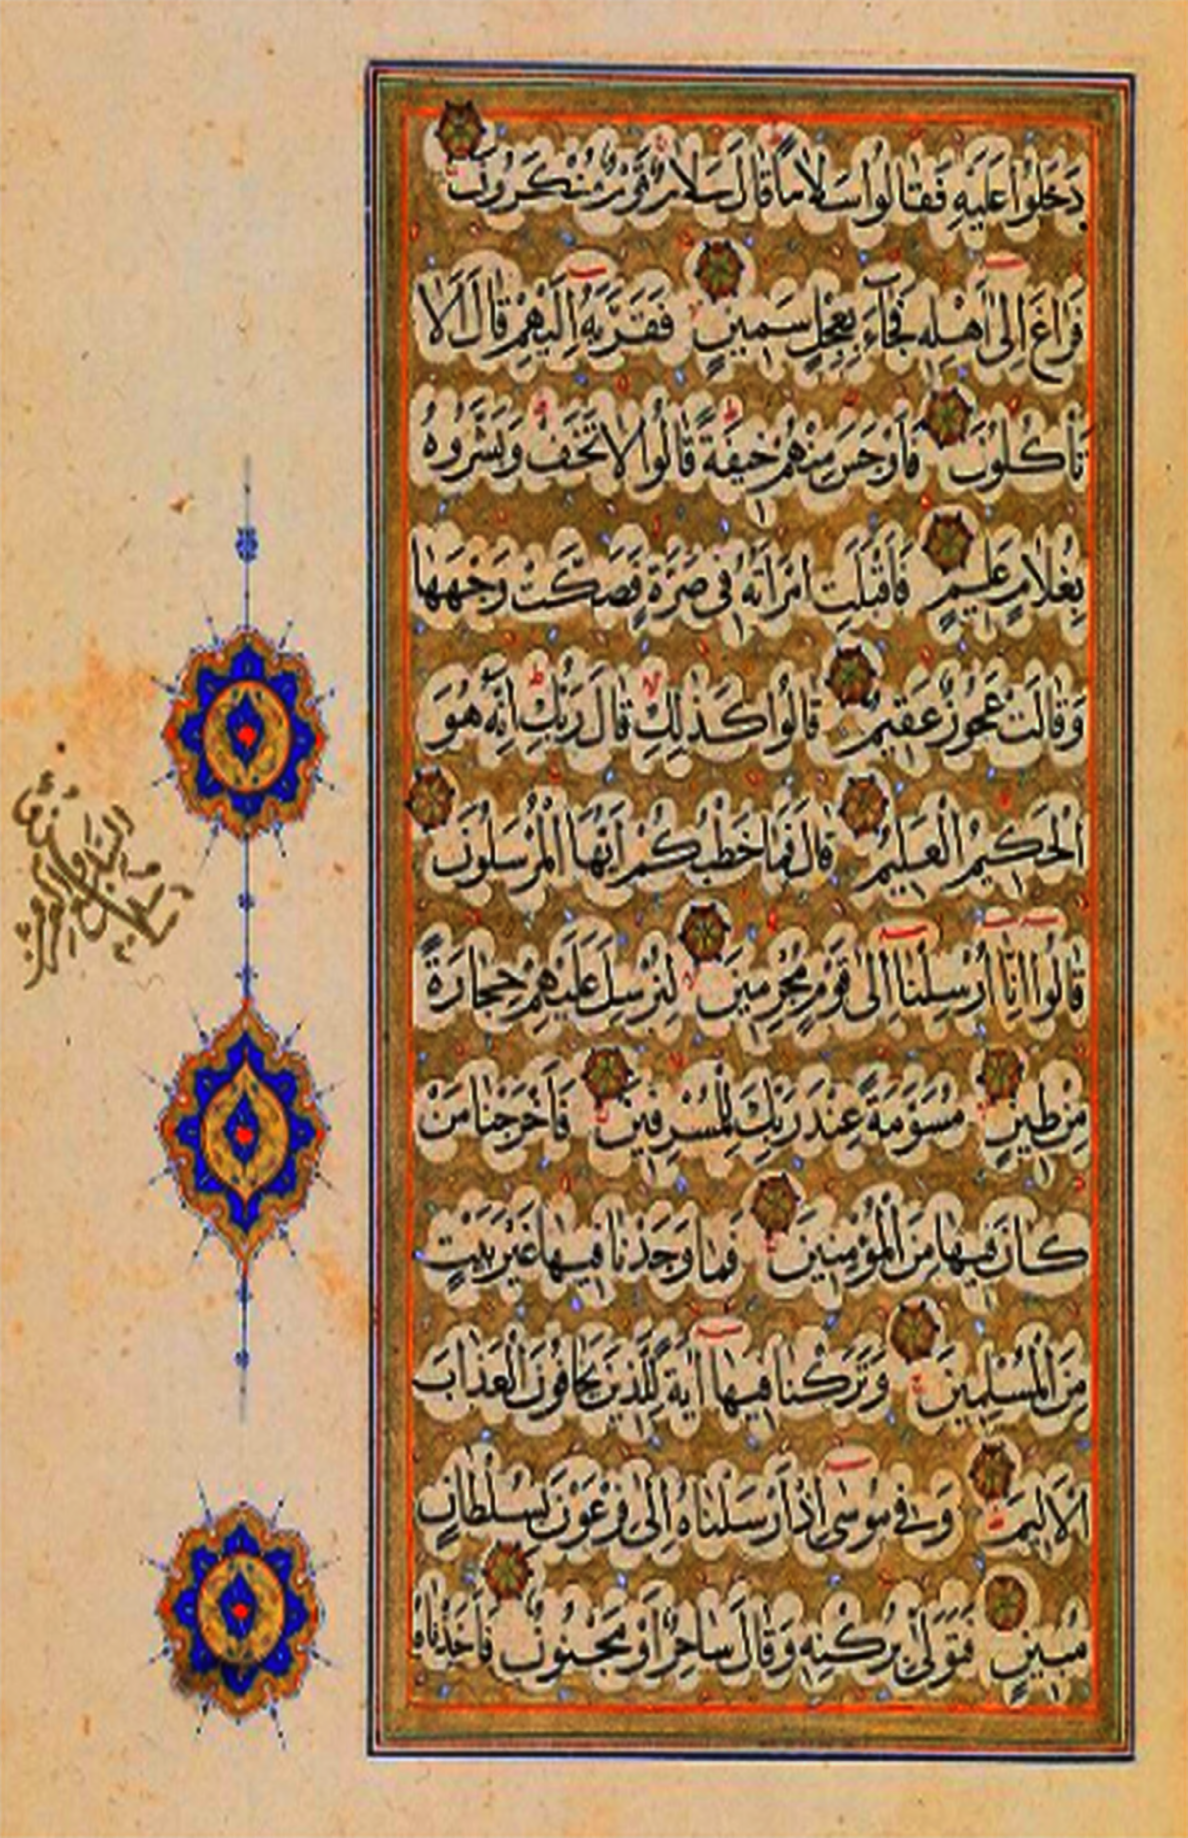 دَخَلُوا عَلَيْهِ فَقَالُوا سَلَامًا قَالَ سَلَامٌ قَوْمٌ مُنْكَرُونَ
فَرَاغَ إِلَى أَهْلِهِ فَجَاءَ بِعِجْلٍ سَمِينٍ فَقَرَّبَهُ إِلَيْهِمْ قَالَ أَلَا
تَأْكُلُونَ فَأَوْجَسَ مِنْهُمْ خِيفَةً قَالُوا لَا تَخَفْ وَبَشَّرُوهُ
بِغُلَامٍ عَلِيمٍ فَأَقْبَلَتِ امْرَأَتُهُ فِي صَرَّةٍ فَصَكَّتْ وَجْهَهَا
وَقَالَتْ عَجُوزٌ عَقِيمٌ قَالُوا كَذَلِكِ قَالَ رَبُّكِ إِنَّهُ هُوَ
الْحَكِيمُ الْعَلِيمُ قَالَ فَمَا خَطْبُكُمْ أَيُّهَا الْمُرْسَلُونَ
قَالُوا إِنَّا أُرْسِلْنَا إِلَى قَوْمٍ مُجْرِمِينَ لِنُرْسِلَ عَلَيْهِمْ حِجَارَةً
مِنْ طِينٍ مُسَوَّمَةً عِنْدَ رَبِّكَ لِلْمُسْرِفِينَ فَأَخْرَجْنَا مَنْ
كَانَ فِيهَا مِنَ الْمُؤْمِنِينَ فَمَا وَجَدْنَا فِيهَا غَيْرَ بَيْتٍ
مِنَ الْمُسْلِمِينَ وَتَرَكْنَا فِيهَا آيَةً لِلَّذِينَ يَخَافُونَ الْعَذَابَ
الْأَلِيمَ وَفِي مُوسَى إِذْ أَرْسَلْنَاهُ إِلَى فِرْعَوْنَ بِسُلْطَانٍ
مُبِينٍ فَتَوَلَّى بِرُكْنِهِ وَقَالَ سَاحِرٌ أَوْ مَجْنُونٌ فَأَخَذْنَاهُ